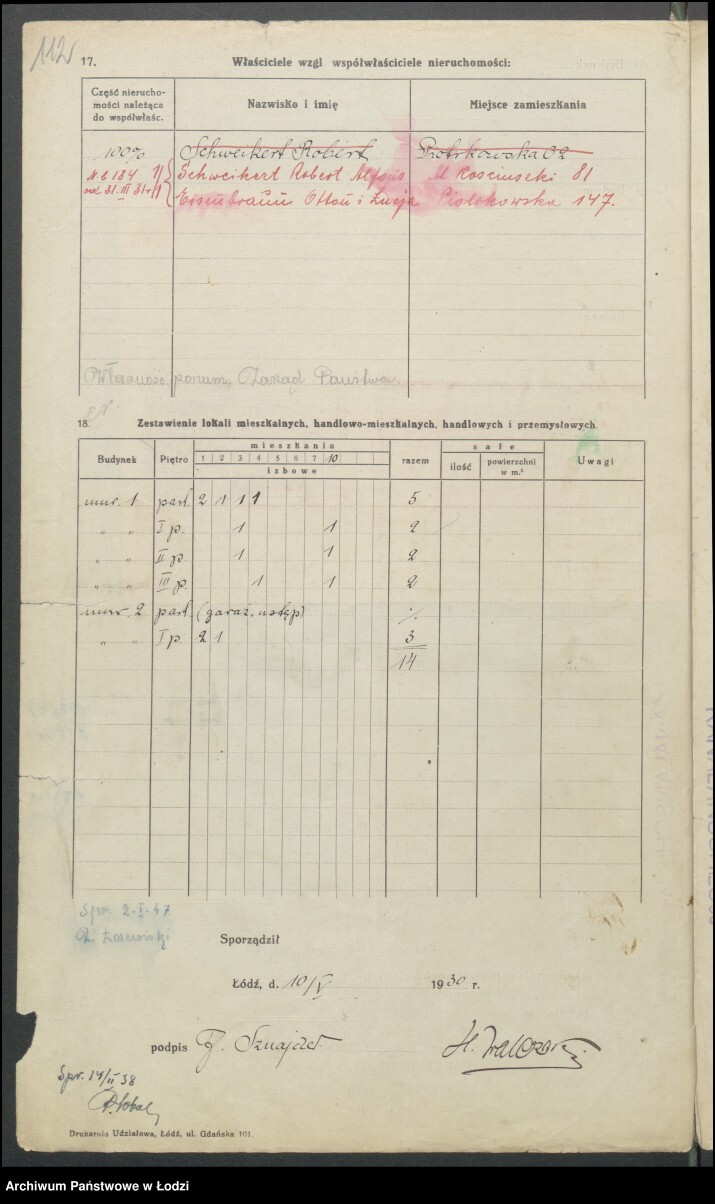 112
17. Właściciele wzgl. współwłaściciele nieruchomości:
Część nierucho-
mości należąca
do współwłaśc.
Nazwisko i imię
Miejsce zamieszkania
100% Schweikert Robert Piotrkowska 02
Schweikert Robert Alfons Kościuszki 81
Eisenbraun Otton i Łucja Piotrkowska 147.
Własność porum, Zarząd Państwa
18. Zestawienie lokali mieszkalnych, handlowo-mieszkalnych, handlowych i przemysłowych.
Budynek Piętro mieszkania razem sale Uwagi
1 2 3 4 5 6 7 10
izbowe
ilość powierzchni
w m.²
mur. 1 part. 2 1 1 1 5
" " I p. 1 1 2
" " II p. 1 1 2
" " III p. 1 1 2
mur. 2 part. (garaż, ustęp) ./.
" " I p. 2 1 3
14
Spr. 2-I-47
Sporządził
Łódź, d. 10/V 1930 r.
podpis F. Sznajder
Spr. 14/II 38
Drukarnia Udziałowa, Łódź, ul. Gdańska 101.
Archiwum Państwowe w Łodzi